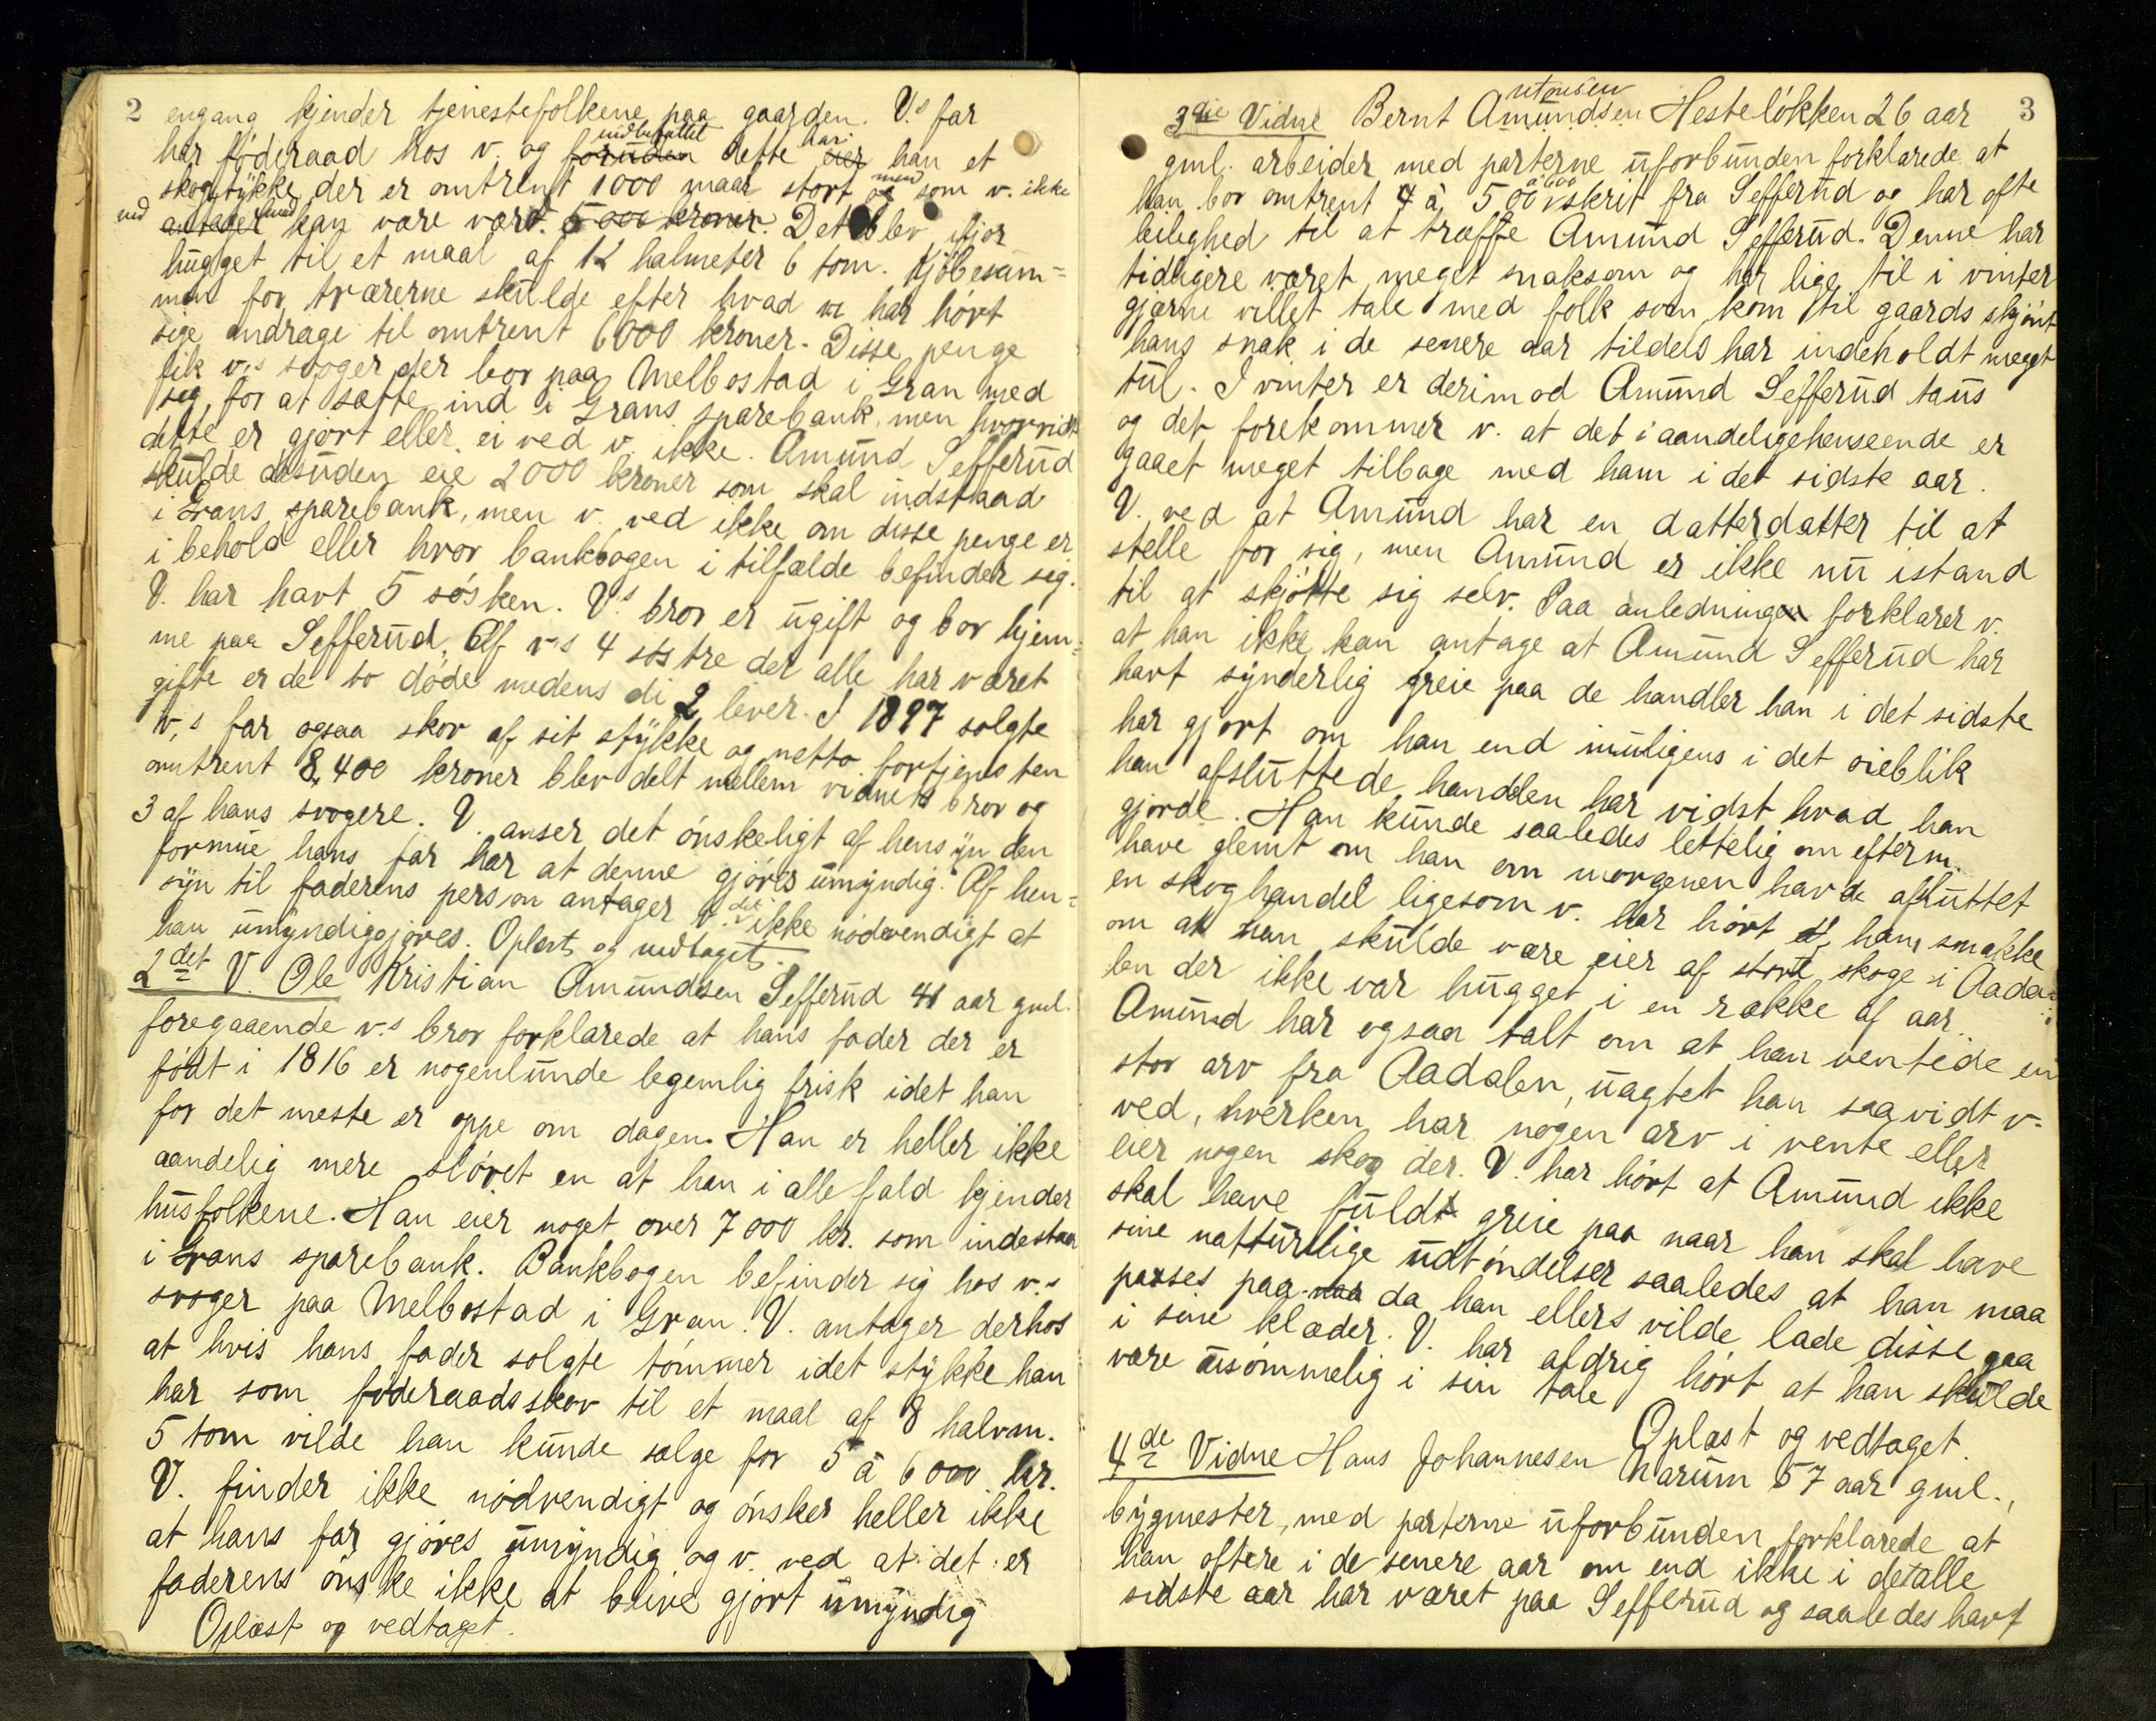 2
engang kjender tjenestefolkene paa gaarden. V.s far
har föderaad hos v. og foruden indbefattet dette eier har han et
skogstykke der er omtrent 1000 maal stort og men som v. ikke
ved antager hvad kan være værd. 5000 kroner. Det blev ifjor
hugget til et maal af 12 halmeter 6 tom. Kjöbesum=
men for trærerne skulde efter hvad v. har hört
sige andrage til omtrent 6000 kroner. Disse penge
fik v.s svoger der bor paa Melbostad i Gran med
sig for at sætte ind i Grans sparebank, men hvorvidt
dette er gjort eller ei ved v. ikke. Amund Sefferud
skulde desuden eie 2000 kroner som skal indstaad
i Grans sparebank, men v. ved ikke om disse penge er
i behold eller hvor bankbogen i tilfælde befinder sig.
V. har havt 5 sösken. V.s bror er ugift og bor hjem=
me paa Sefferud. Af v.s 4 söstre der alle har været
gifte er de to döde medens di 2 lever. I 1897 solgte
v.s far ogsaa skov af sit stykke og netto fortjensten
omtrent 8,400 kroner blev delt mellem vidnets bror og
3 af hans svogere. V. anser det önskeligt af hensyn den
formue hans far har at denne gjöres umyndig. Af hen=
syn til faderens person antager v. det ikke nödvendigt at
han umyndiggjöres. Oplæst og vedtaget.
2det V. Ole Kristian Amundsen Sefferud 41 aar gml.
foregaaende v.s bror forklarede at hans fader der er
född i 1816 er nogenlunde legemlig frisk idet han
for det meste er oppe om dagen. Han er heller ikke
aandelig mere slövet en at han i alle fald kjender
husfolkene. Han eier noget over 7000 kr. som indestaa
i Grans sparebank. Bankbogen befinder sig hos v.s
svoger paa Melbostad i Gran. V. antager derhos
at hvis hans fader solgte tömmer idet stykke han
har som föderaadsskov til et maal af 8 halvm.
5 tom vilde han kunde sælge for 5 à 6000 kr.
V. finder ikke nödvendigt og önsker heller ikke
at hans far gjöres umyndig og v. ved at det er
faderens önske ikke at blive gjort umyndig
Oplæst og vedtaget.
3
3die Vidne Bernt Amundsen Hestelökken 26 aar
gml. arbeider med parterne uforbunden forklarede at
han bor omtrent 4 à 500 à 600 skrit fra Sefferud og har ofte
leilighed til at træffe Amund Sefferud. Denne har
tidligere været meget snaksom og har lige til i vinter
gjærne villet tale med folk som kom til gaards skjönt
hans snak i de senere aar tildels har indeholdt meget
tul. I vinter er derimod Amund Sefferud taus
og det forekommer v. at det i aandeligehenseende er
gaaet meget tilbage med ham i det sidste aar.
V. ved at Amund har en datterdatter til at
stelle for sig, men Amund er ikke nu istand
til at skjötte sig selv. Paa anledningen forklarer v.
at han ikke kan antage at Amund Sefferud har
havt synderlig greie paa de handler han i det sidste
har gjort om han end muligens i det öieblik
han afsluttede handelen har vidst hvad han
gjorde. Han kunde saaledes lettelig om efterm.
have glemt om han om morgenen havde afsluttet
en skoghandel ligesom v. har hört ham snakke
om at han skulde være eier af store skoge i Aada=
len der ikke var hugget i en række af aar.
Amund har ogsaa talt om at han ventede en
stor arv fra Aadalen, uagtet han saavidt v.
ved, hverken har nogen arv i vente eller
eier nogen skog der. V. har hört at Amund ikke
skal have fuldt greie paa naar han skal have
sine natturlige udtöndelser saaledes at han maa
passes paa naa da han ellers vilde lade disse gaa
i sine klæder. V. har aldrig hört at han skulde
være usömmelig i sin tale
Oplæst og vedtaget.
4de Vidne Hans Johannesen Narum 57 aar gml.,
bygmester, med parterne uforbunden forklarede at
han oftere i de senere aar om end ikke i detalle
sidste aar har været paa Sefferud og saaledes havt